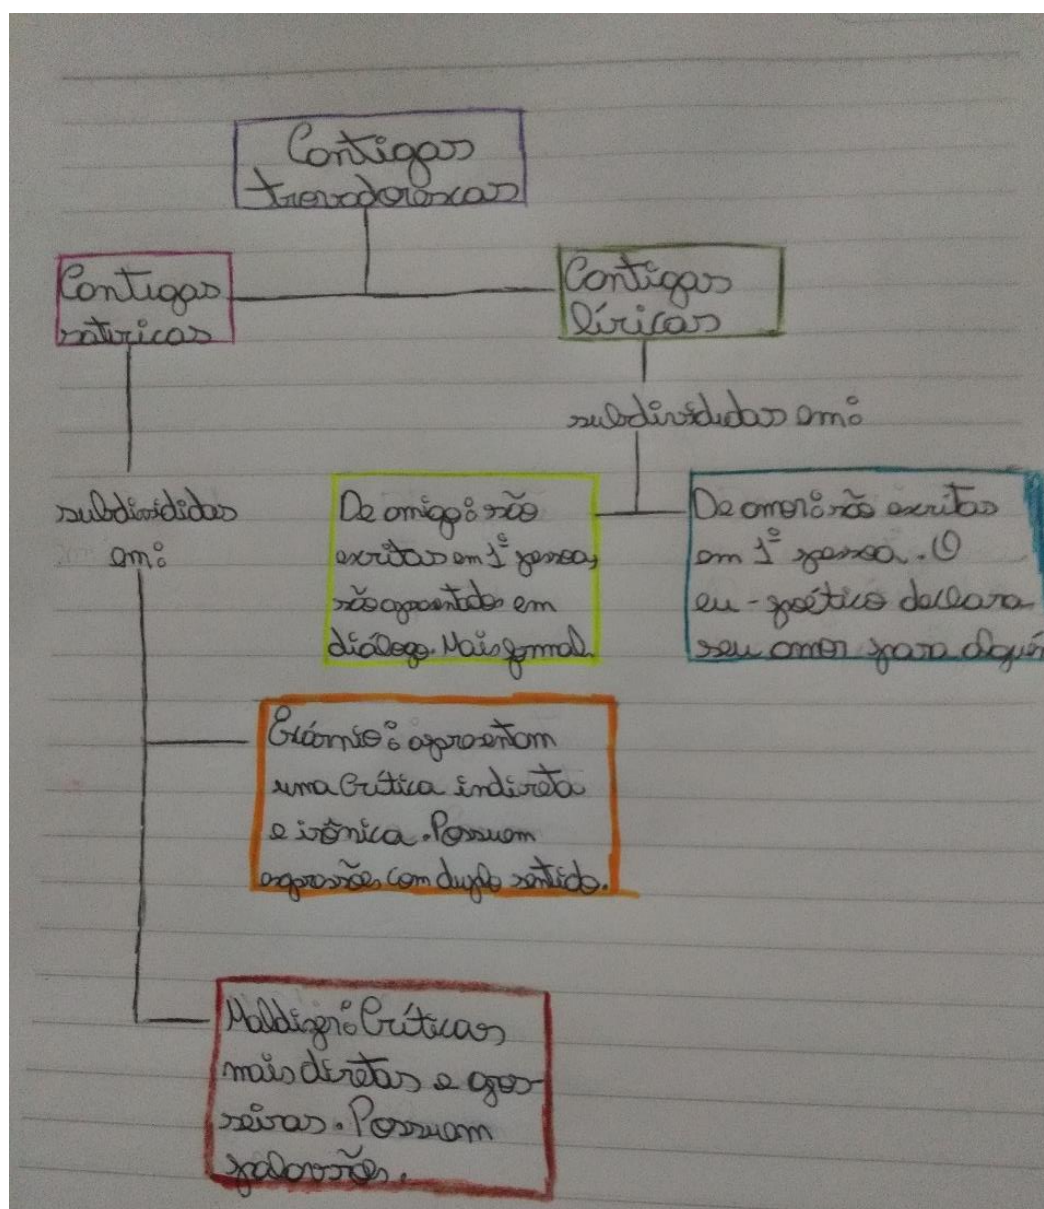 Cantigas
trovadorescas
Cantigas
satíricas
Cantigas
líricas
subdivididas em:
subdivididas
em:
De amigo: são
escritas em 1ª pessoa,
são apresentadas em
diálogo. Mais formal.
De amor: são escritas
em 1ª pessoa. O
eu-poético declara
seu amor para alguém
Escárnio: apresentam
uma crítica indireta
e irônica. Possuem
expressões com duplo sentido.
Maldizer: Críticas
mais diretas e gros-
seiras. Possuem
palavrões.